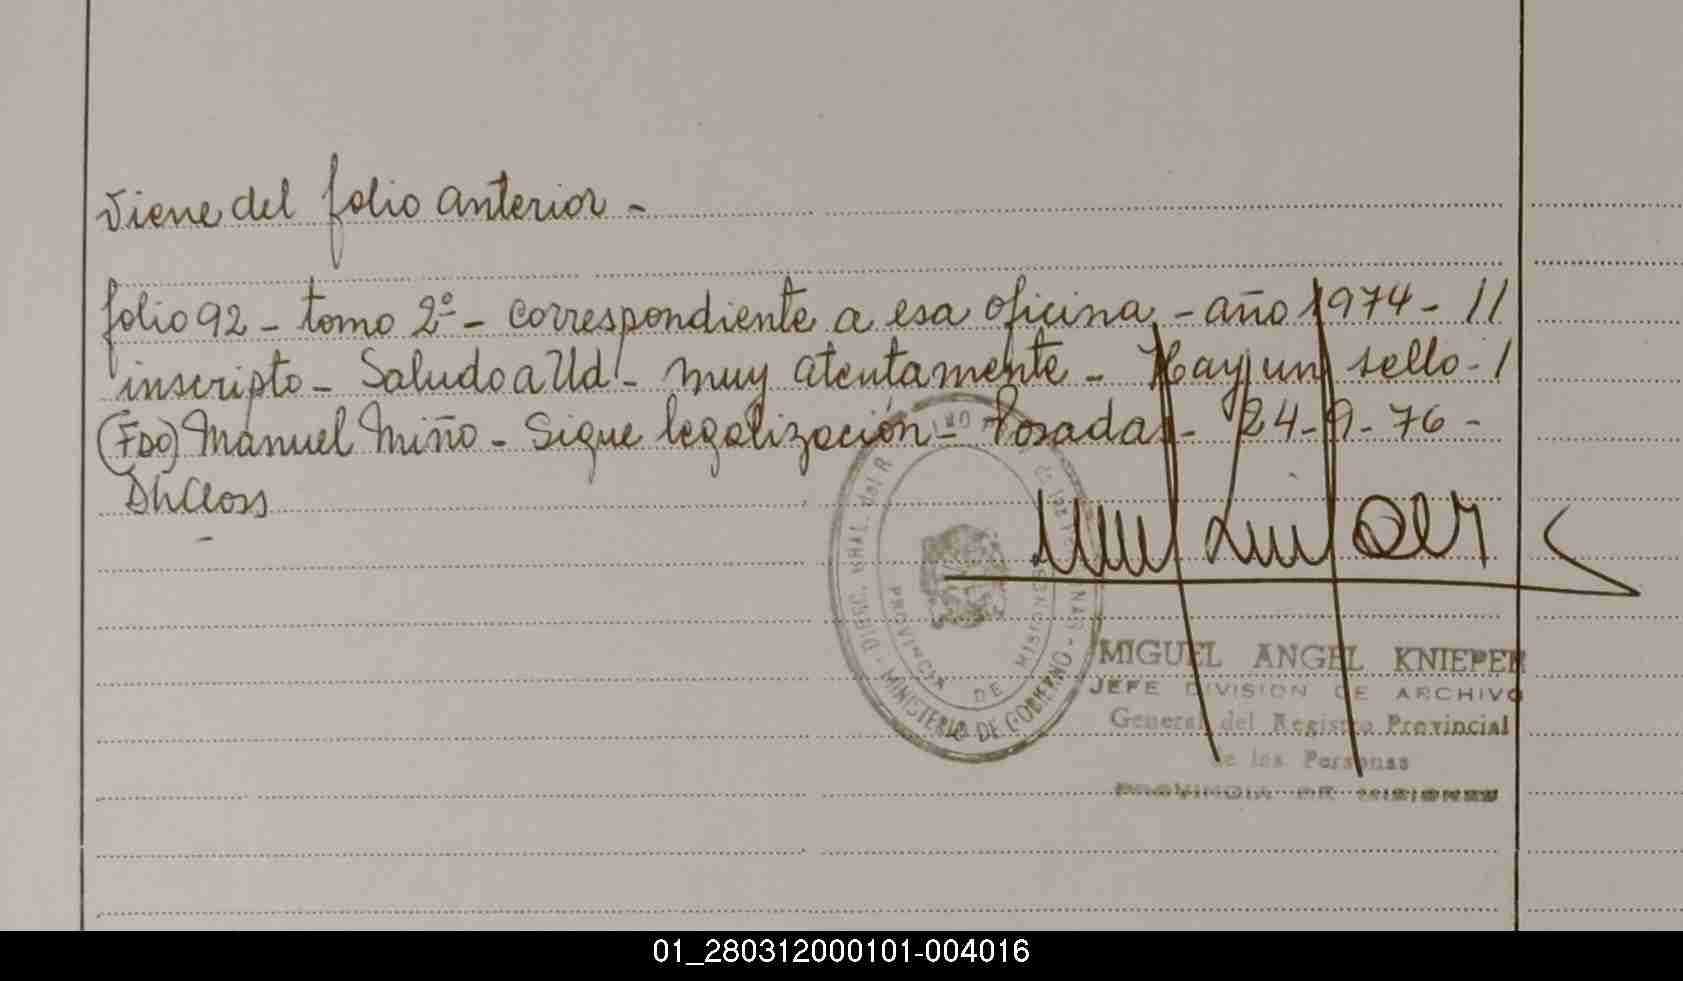 Viene del folio anterior -
folio 92 - tomo 2º - correspondiente a esa oficina - año 1974 - //
inscripto - Saludo a Ud - muy atentamente - Hay un sello - /
(FDO) Manuel Miño - Sigue legalización - Posadas - 24-9-76 -
DIREC. GRAL. del R
de las PE
NAS - MINISTERIO DE GOBIERNO -
PROVINCIA DE MISIONES
MIGUEL ANGEL KNIEPER
JEFE DIVISION DE ARCHIVO
General del Registro Provincial
de las Personas
PROVINCIA DE MISIONES
01_280312000101-004016